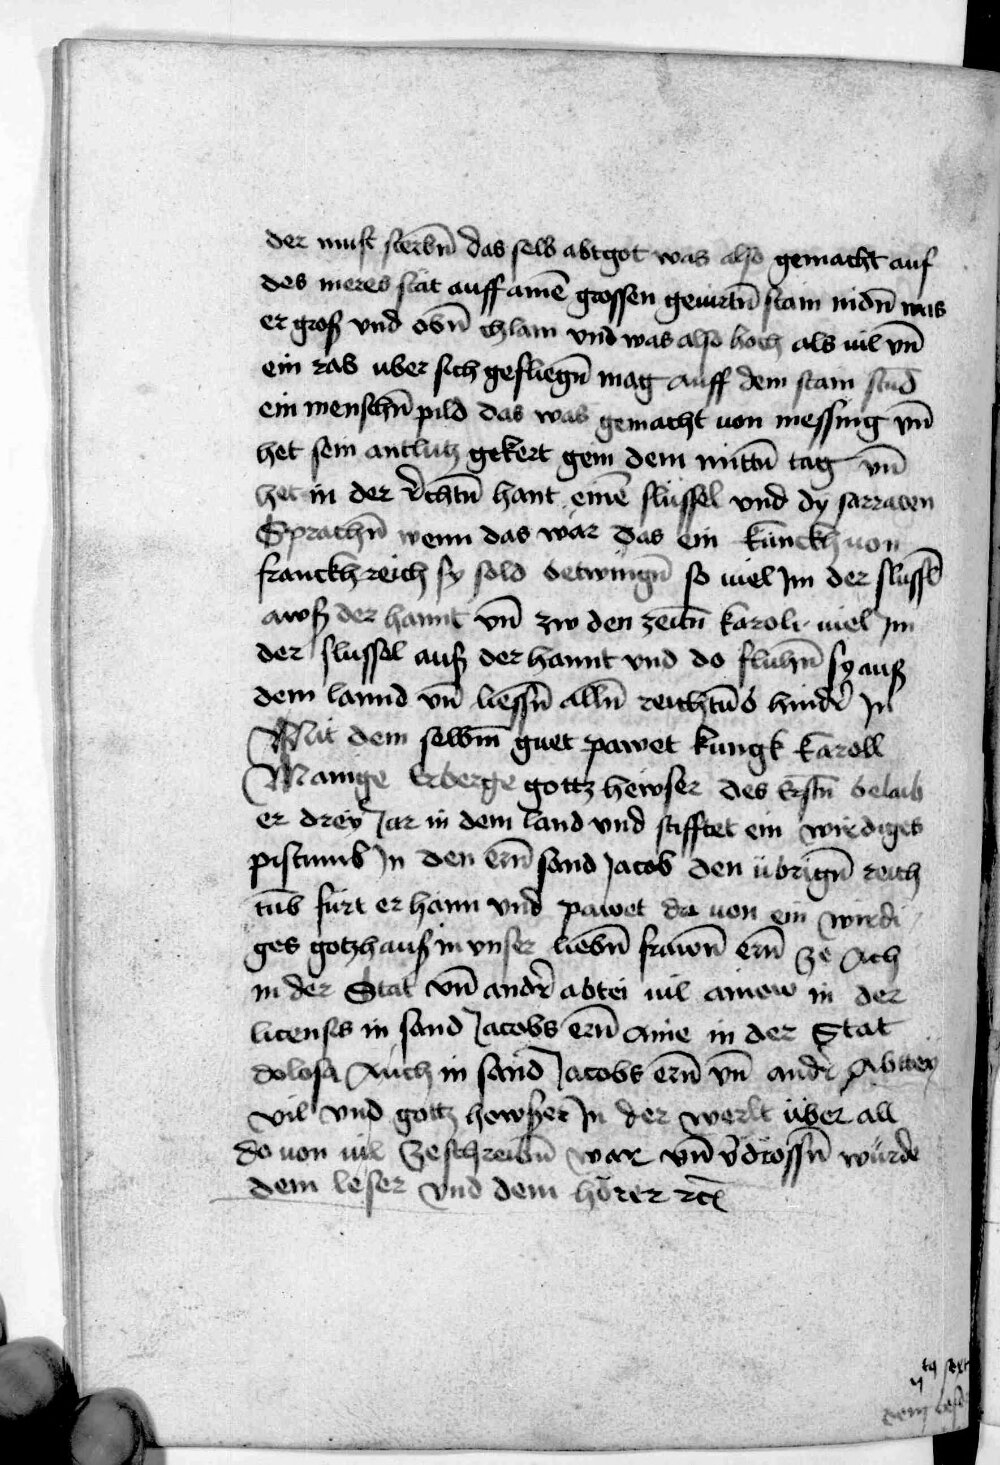 der must sterbn̄ das selb abtgot was also gemacht auf
des meres stat auff amē grossen gevirtn̄ stain nidn̄ was
er groß vnd obn̄ chlain vnd was also hoch als vil vn̄
ein rab vber sich gefliegn̄ mag auff dem stain stūd
ein menschn̄ pild das was gemacht von messing vn̄
het sein antlutz gekert gein dem mittn̄ tag vn̄
het in der rechtn̄ hant einē slüssel vnd dy sarracen
Sprachn̄ wenn das wär das ein künckh von
franckhreich sy sold betwingn̄ so viel Jm der slussel
awß der hannt vn̄ zw den zeitn̄ karoli viel Jm
der slussel auß der hannt vnd do fluhn̄ sy auß
dem lannd vn̄ liessn̄ alln̄ reichtūb hindr̄ Jn
Mit dem selbm̄ guet pawet kungk karoll
Manige Erberge gottz hewser des Erstn̄ belaib
er drey Jar in dem land vnd stifftet ein wirdiges
pistumb Jn den ern̄ sand Jacob den übrign̄ reich
tūb fürt er haim vnd pawet da von ein wirdi
ges gotzhauß in vnser liebn̄ frawn̄ ern̄ ze Ach
in der Stat vn̄ andr̄ abtei vil ainew in der
licensis in sand Jacobs ern̄ Aine in der Stat
dolosa Auch in sand Jacobs ern̄ vn̄ andr̄ Abttey
vil vnd gottz hewßer Jn der werlt über all
do von vil ze schreibn̄ war vn̄ v̄drossn̄ würde
dem leser vnd dem hörer rc̄